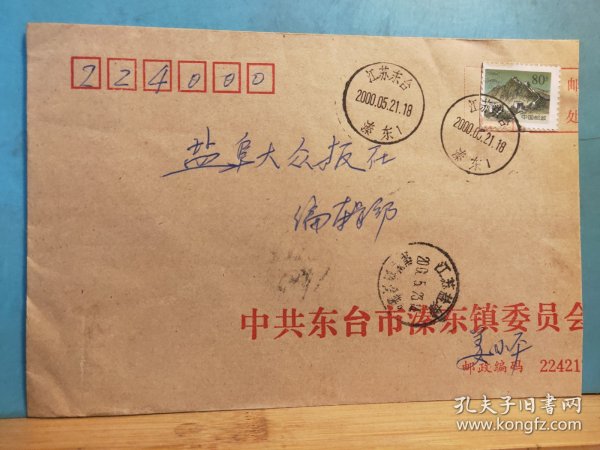 224000
80分
中国邮政
邮
处
江苏东台
2000.05.21.18
溱东1
江苏东台
2000.05.21.18
溱东1
盐阜大众报社
编辑部
江苏盐城
中共东台市溱东镇委员会
邮政编码 22421
孔夫子旧书网
www.kongfz.com